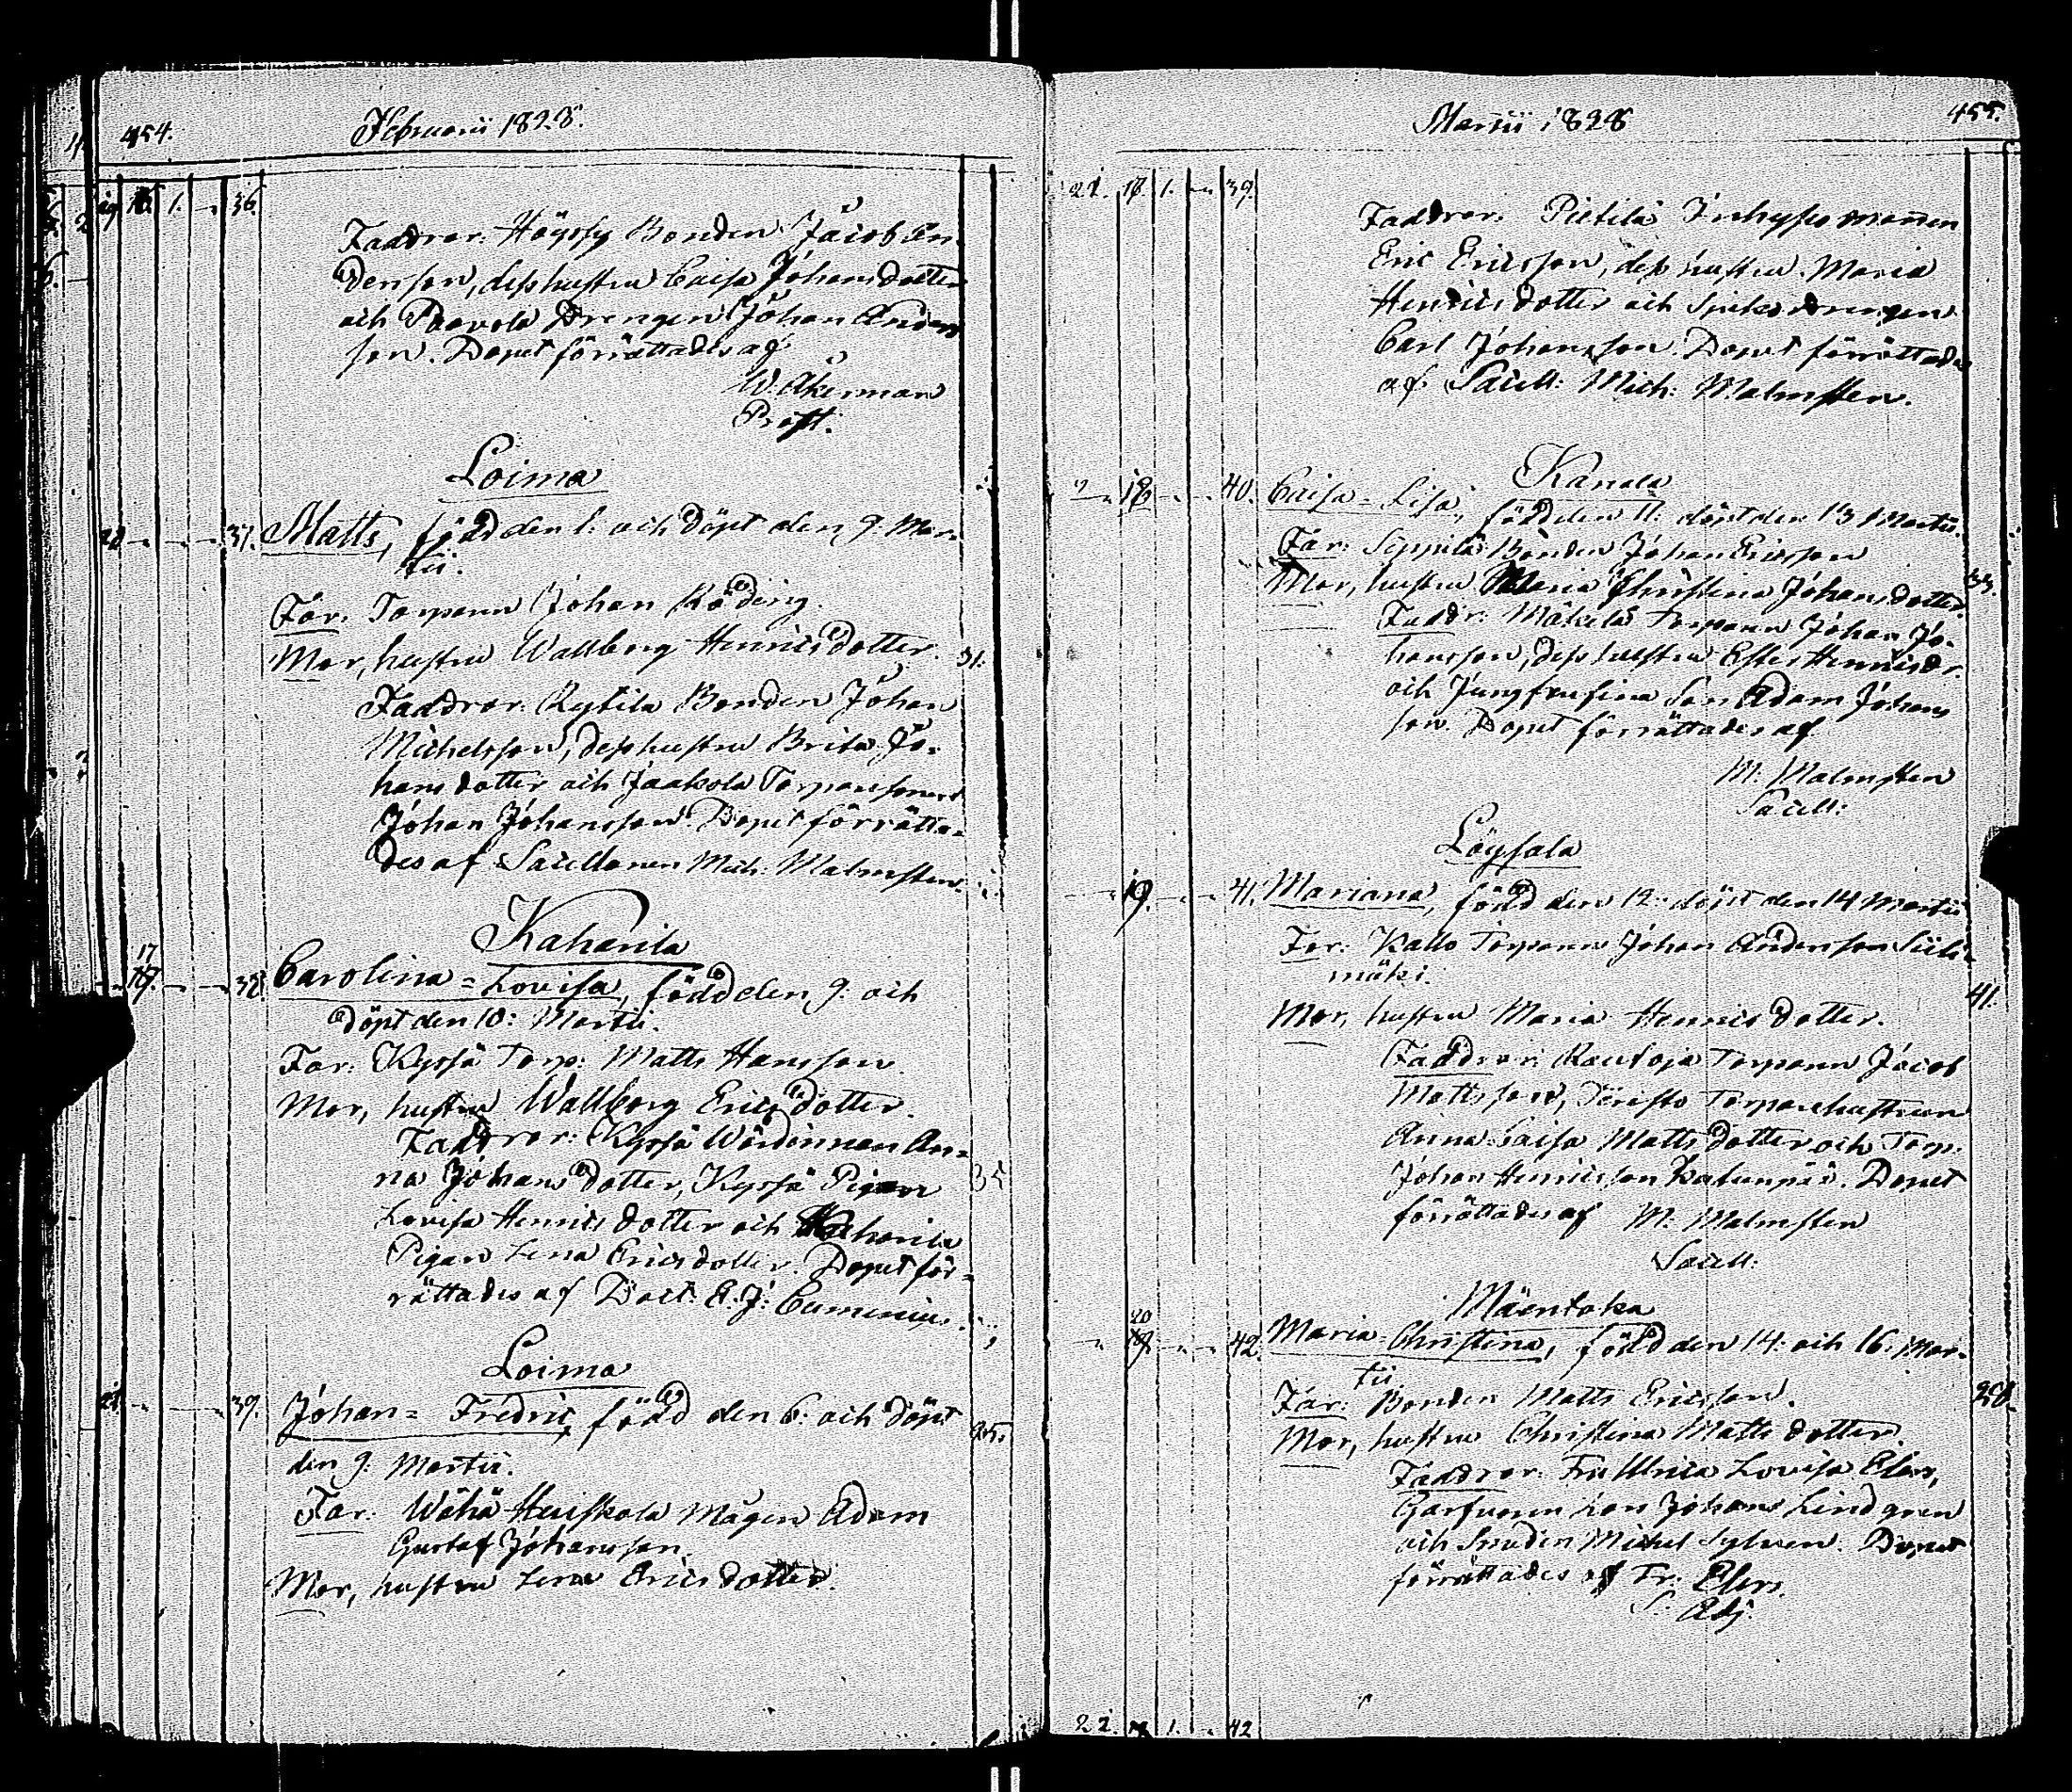 454. Februarii 1828.
19 16. 1. - 36.
Faddrar: Höyssy Bonden Jacob An-
dersson, dess hustru Caisa Johansdotter
och Paavola Drengen Johan Anders
son. Dopet förrättades af
W. Åkerman
Prost.
Loima
37. Matts, född den 1: och döpt den 9. Mar-
tii.
Far: Torparen Johan Röding.
Mor, hustru Wallborg Henricsdotter. 31.
Faddrar: Kytilä Bonden Johan
Michelsson, dess hustru Brita Jo-
hansdotter och Jaakola Torparesonen
Johan Johansson. Dopet förrätta-
des af Sacellanen Mich: Malmsten.
Kaharila
17
38. Carolina = Lovisa, född den 9. och
döpt den 10: Martii.
Far: Kyssä Torp: Matts Hansson.
Mor, hustru Wallborg Ericsdotter.
Faddrar: Kyssä Wärdinnan An-
na Johansdotter, Kyssä Pigan 35
Lovisa Henricsdotter och Kaharila
Pigan Lena Ericsdotter. Dopet för-
rättades af Doct: E. J: Cumenius.
Loima
21. 39. Johan = Fredric, född den 6: och döpt 25.
den 9: Martii.
Far: Wähä Heiskola Mågen Adam
Gustaf Johansson.
Mor, hustru Lena Ericsdotter.
Martii 1828 455.
21. 17. 1. - 39.
Faddrar: Pietilä Inhysesmannen
Eric Ericsson, dess hustru Maria
Henricsdotter och drengen
Carl Johansson. Dopet förrättades
af Sacell: Mich: Malmsten.
Kanala
18 40. Caisa = Lisa, född den 11: döpt den 13 Martii.
Far: Seppilä Bonden Johan Ericsson
Mor, hustru Maria Christina Johansdotter. 33.
Faddr: Mäkilä Torparen Johan Jo-
hansson, dess hustru Ester Henricsdr.
och Jungfru Son Adam Johans
son. Dopet förrättades af
M: Malmsten
Sacell:
Löysala
19. 41. Mariana, född den 12: döpt den 14 Martii
Far: Kallo Torparen Johan Andersson
mäki.
41.
Mor, hustru Maria Henricsdotter.
Faddrar: Rautoja Torparen Jacob
Mattsson, Torparehustrun
Anna Caisa Mattsdotter och Torp:
Johan Henricsson. Dopet
förrättades af M: Malmsten
Sacell:
Mäentaka
20
42. Maria = Christina, född den 14: och 16: Mar-
tii.
Far: Bonden Matts Ericsson. 28.
Mor, hustru Christina Mattsdotter.
Faddrar: Fru Ulrica Lovisa Elers,
Garfvaren Johan Lindgren
och Smeden Michel Sylven. Dopet
förrättades af Fr: Elers.
S: Adj.
22. 1. - 42